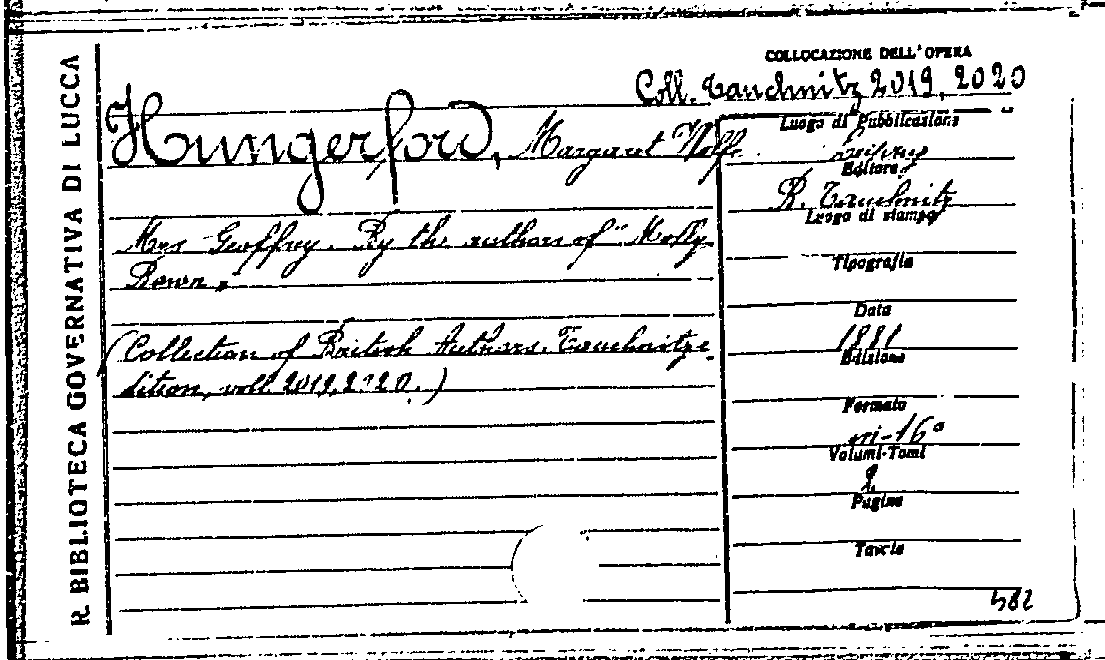 R. BIBLIOTECA GOVERNATIVA DI LUCCA
COLLOCAZIONE DELL'OPERA
Coll. Tauchnitz 2019, 2020
Hungerford, Margaret Wolfe
Mrs Geoffrey. By the author of "Molly
Bawn"
(Collection of British Authors. Tauchnitz e-
dition, voll. 2019, 2020.)
Luogo di Pubblicazione
Leipzig
Editore
B. Tauchnitz
Luogo di stampa
Tipografia
Data
1881
Edizione
Formato
in-16°
Volumi-Tomi
2
Pagine
Tavole
582